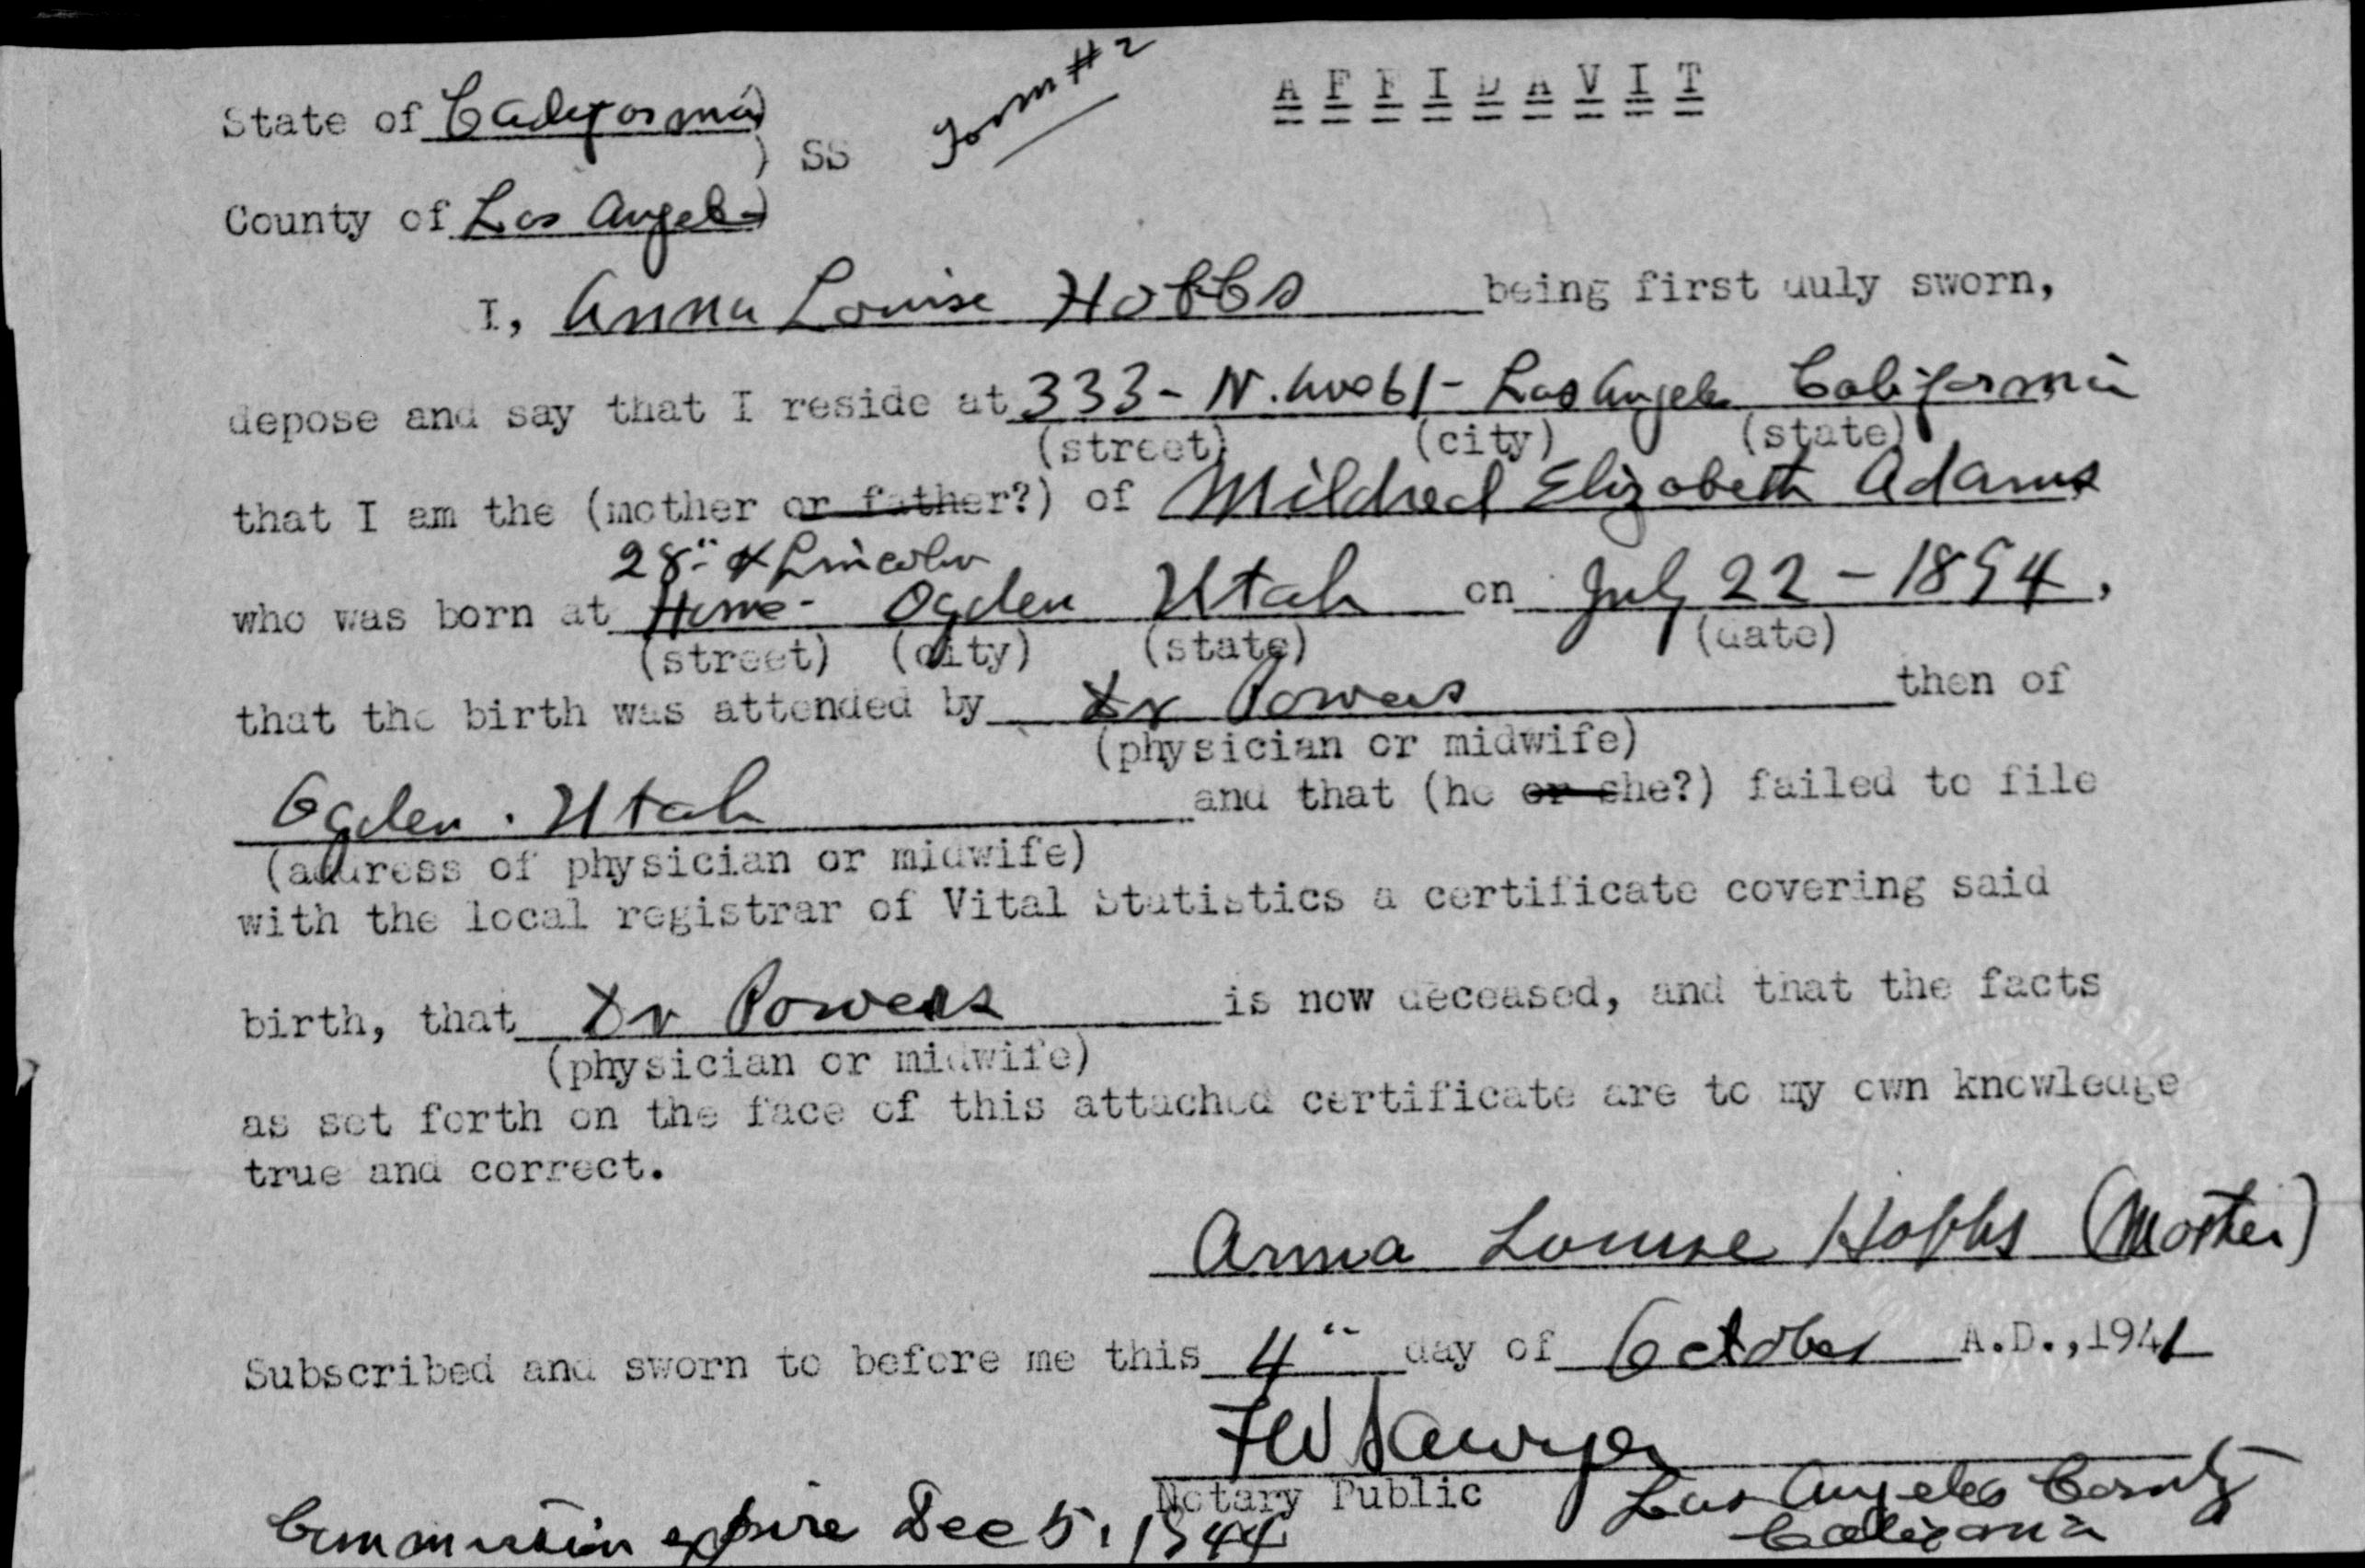 Form #2
A F F I D A V I T
State of California)
) SS
County of Los Angeles)
I, Anna Louise Hobbs being first duly sworn,
depose and say that I reside at 333 - N. Ave 61 - Los Angeles California
(street) (city) (state)
that I am the (mother or father?) of Mildred Elizabeth Adams
28" & Lincoln
who was born at Home - Ogden Utah on July 22 - 1894.
(street) (city) (state) (date)
that the birth was attended by Dr Powers then of
(physician or midwife)
Ogden. Utah and that (he or she?) failed to file
(address of physician or midwife)
with the local registrar of Vital Statistics a certificate covering said
birth, that Dr Powers is now deceased, and that the facts
(physician or midwife)
as set forth on the face of this attached certificate are to my own knowledge
true and correct.
Anna Louise Hobbs (Mother)
Subscribed and sworn to before me this 4" day of October A.D., 1941
FW Sawyer
Notary Public Los Angeles County
California
Commission expire Dec 5, 1944